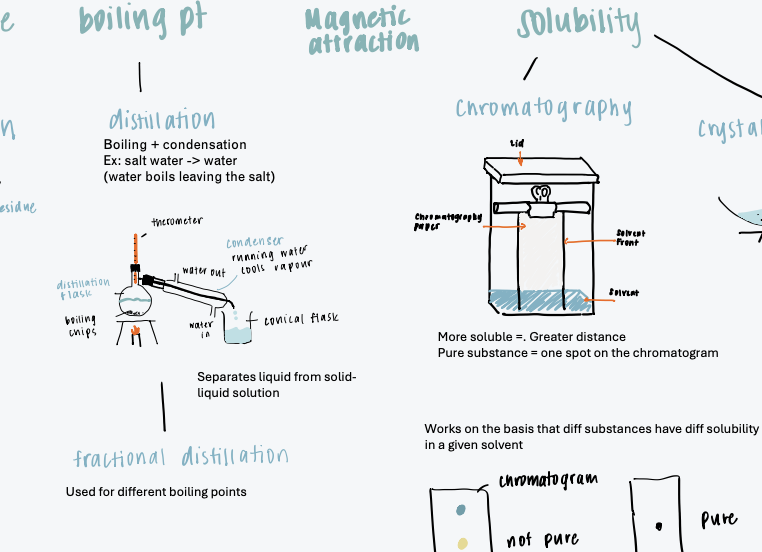 e
boiling pt
Magnetic
attraction
solubility
n
esidue
distillation
Boiling + condensation
Ex: salt water -> water
(water boils leaving the salt)
thermometer
condenser
running water
cools vapour
water out
distillation
flask
boiling
chips
water
in
conical flask
Separates liquid from solid-
liquid solution
fractional distillation
Used for different boiling points
Chromatography
Lid
Chromatography
paper
Solvent
Front
Solvent
More soluble =. Greater distance
Pure substance = one spot on the chromatogram
Works on the basis that diff substances have diff solubility
in a given solvent
chromatogram
not pure
pure
Crystal